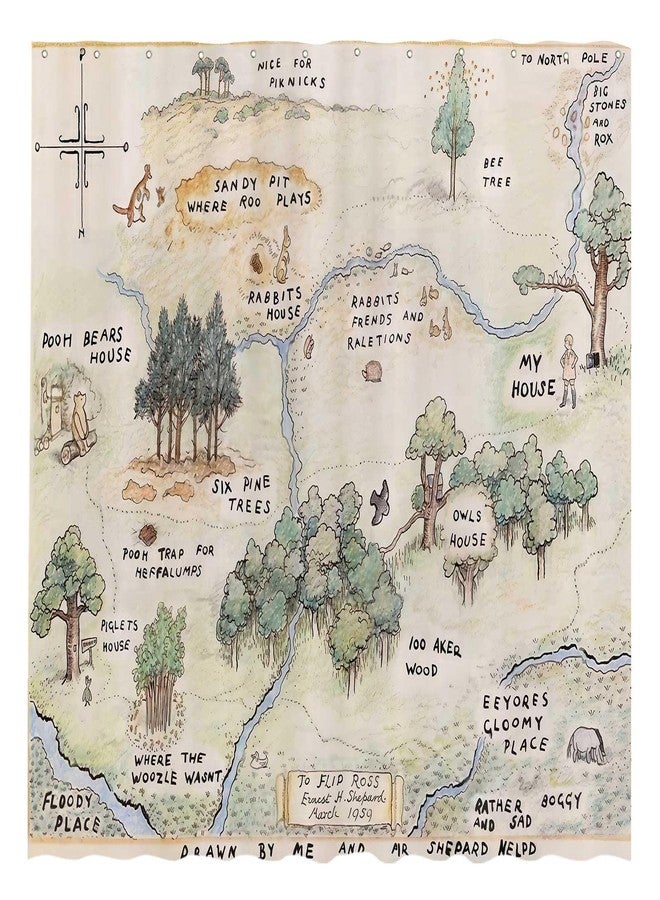 P
NICE FOR
PIKNICKS
TO NORTH POLE
BIG
STONES
AND
ROX
BEE
TREE
SANDY PIT
WHERE ROO PLAYS
RABBITS
HOUSE
RABBITS
FRENDS AND
RALETIONS
POOH BEARS
HOUSE
MY
HOUSE
SIX PINE
TREES
OWLS
HOUSE
POOH TRAP FOR
HEFFALUMPS
PIGLETS
HOUSE
100 AKER
WOOD
EEYORES
GLOOMY
PLACE
WHERE THE
WOOZLE WASNT
FLOODY
PLACE
To FLIP ROSS
Ernest H. Shepard
March 1959
RATHER BOGGY
AND SAD
DRAWN BY ME AND MR SHEPARD HELPD